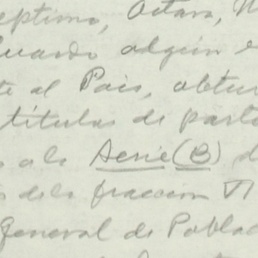 eptimo, Octava, N
Cuando algún e
te al País, obtu
títulos de part
s a la Serie (B) d
s de la fracción VI
General de Poblad